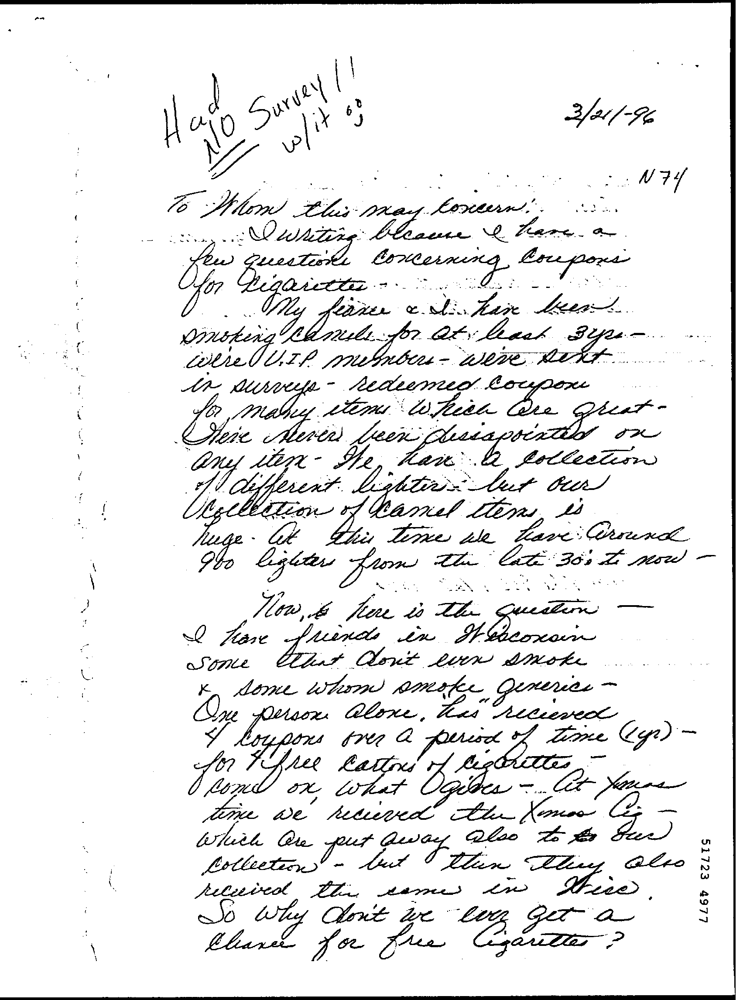 Had
NO Survey!!
w/it
3/21/-96
N74
To Whom this may Concern:
I writing because I have a
few questions concerning Coupons
for Cigarettes -
My fiance & I have been
smoking Camels for at least 3yrs -
we're V.I.P. members - weve sent
in surveys - redeemed coupons
for many items which are great -
Have never been dissapointed on
any item - We have a collection
of different lighters - but our
Collection of Camel items is
huge. At this time we have around
900 lighters from the late 30's to now -
Now, here is the question -
I have friends in Wisconsin
some that don't even smoke
& some whom smoke generics -
One person alone, "has" recieved
4 Coupons over a period of time (1yr) -
for 4 free cartons of cigarettes -
Come on, what gives - At Xmas
time we recieved the Xmas Cig -
which are put away also to our
collection - but then they also
recieved the same in Wisc.
So why don't we ever get a
chance for free Cigarettes?
51723 4977